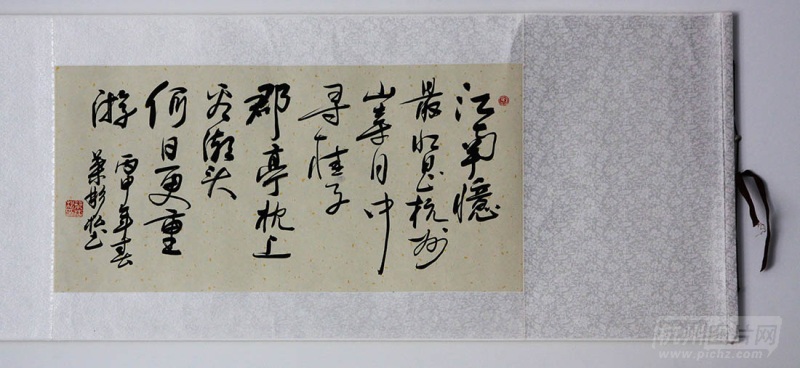 江南憶
最忆是杭州
山寺月中
寻桂子
郡亭枕上
看潮头
何日更重
游
丙申年春
杭州图片网
www.pichz.com